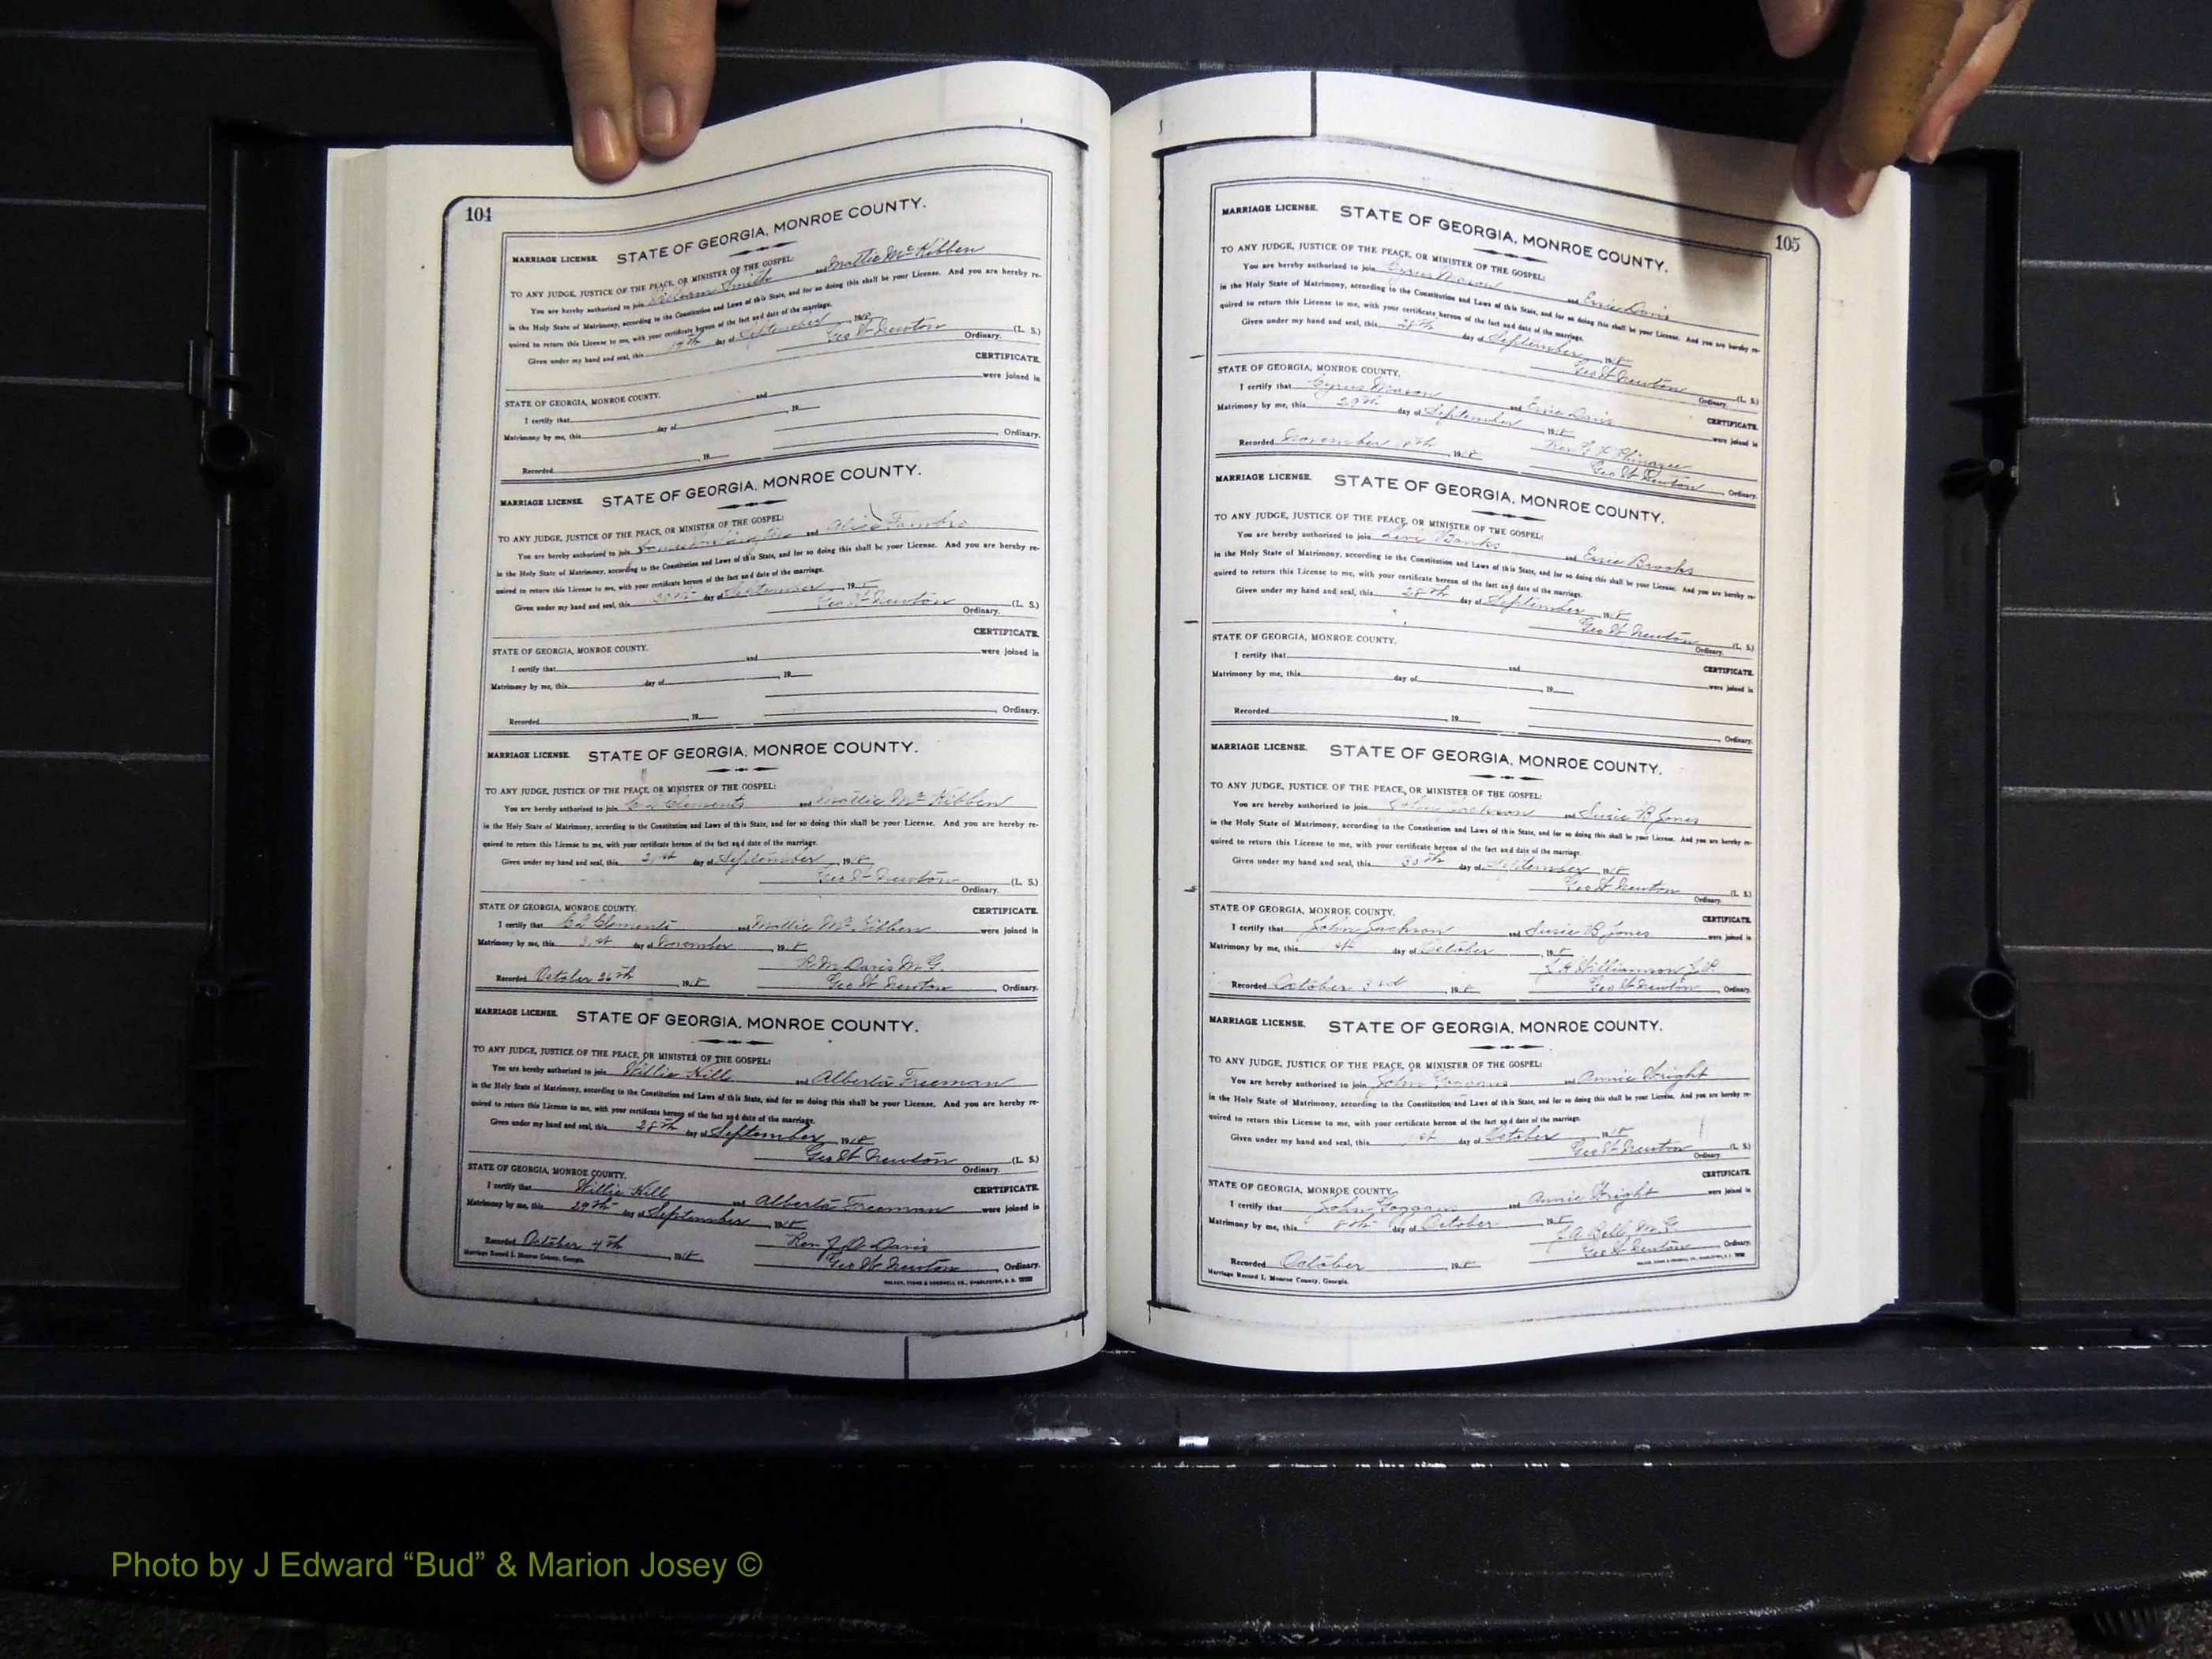 104
MARRIAGE LICENSE. STATE OF GEORGIA, MONROE COUNTY.
TO ANY JUDGE, JUSTICE OF THE PEACE, OR MINISTER OF THE GOSPEL:
You are hereby authorized to join William Smith and Mattie McKibben
in the Holy State of Matrimony, according to the Constitution and Laws of this State, and for so doing this shall be your License. And you are hereby re-
quired to return this License to me, with your certificate hereon of the fact and date of the marriage.
Given under my hand and seal, this 19th day of September 1918
Geo W Newton (L. S.)
Ordinary.
CERTIFICATE.
STATE OF GEORGIA, MONROE COUNTY.
I certify that and were joined in
Matrimony by me, this day of , 19
Recorded , 19 Ordinary.
MARRIAGE LICENSE. STATE OF GEORGIA, MONROE COUNTY.
TO ANY JUDGE, JUSTICE OF THE PEACE, OR MINISTER OF THE GOSPEL:
You are hereby authorized to join and Alice
in the Holy State of Matrimony, according to the Constitution and Laws of this State, and for so doing this shall be your License. And you are hereby re-
quired to return this License to me, with your certificate hereon of the fact and date of the marriage.
Given under my hand and seal, this day of September 1918
Geo W Newton (L. S.)
Ordinary.
CERTIFICATE.
STATE OF GEORGIA, MONROE COUNTY.
I certify that and were joined in
Matrimony by me, this day of , 19
Recorded , 19 Ordinary.
MARRIAGE LICENSE. STATE OF GEORGIA, MONROE COUNTY.
TO ANY JUDGE, JUSTICE OF THE PEACE, OR MINISTER OF THE GOSPEL:
You are hereby authorized to join C L Clements and Mattie McKibben
in the Holy State of Matrimony, according to the Constitution and Laws of this State, and for so doing this shall be your License. And you are hereby re-
quired to return this License to me, with your certificate hereon of the fact and date of the marriage.
Given under my hand and seal, this 21st day of September, 1918
Geo W Newton (L. S.)
Ordinary.
STATE OF GEORGIA, MONROE COUNTY. CERTIFICATE.
I certify that C L Clements and Mattie McKibben were joined in
Matrimony by me, this 21st day of November, 1918
R. M. Davis M. G.
Recorded October 26th, 1918 Geo W Newton, Ordinary.
MARRIAGE LICENSE. STATE OF GEORGIA, MONROE COUNTY.
TO ANY JUDGE, JUSTICE OF THE PEACE, OR MINISTER OF THE GOSPEL:
You are hereby authorized to join Willie Hill and Alberta Freeman
in the Holy State of Matrimony, according to the Constitution and Laws of this State, and for so doing this shall be your License. And you are hereby re-
quired to return this License to me, with your certificate hereon of the fact and date of the marriage.
Given under my hand and seal, this 28th day of September, 1918
Geo W Newton (L. S.)
Ordinary.
STATE OF GEORGIA, MONROE COUNTY. CERTIFICATE.
I certify that Willie Hill and Alberta Freeman were joined in
Matrimony by me, this 29th day of September, 1918
Rev J. D. Davis
Recorded October 4th, 1918 Geo W Newton, Ordinary.
Marriage Record I, Monroe County, Georgia.
105
MARRIAGE LICENSE. STATE OF GEORGIA, MONROE COUNTY.
TO ANY JUDGE, JUSTICE OF THE PEACE, OR MINISTER OF THE GOSPEL:
You are hereby authorized to join Cyrus Mason and Essie Davis
in the Holy State of Matrimony, according to the Constitution and Laws of this State, and for so doing this shall be your License. And you are hereby re-
quired to return this License to me, with your certificate hereon of the fact and date of the marriage.
Given under my hand and seal, this 28th day of September, 1918
Geo W Newton (L. S.)
Ordinary.
STATE OF GEORGIA, MONROE COUNTY. CERTIFICATE.
I certify that Cyrus Mason and Essie Davis were joined in
Matrimony by me, this 29th day of September, 1918
Rev. Phinazee
Recorded November 8th, 1918 Geo W Newton, Ordinary.
MARRIAGE LICENSE. STATE OF GEORGIA, MONROE COUNTY.
TO ANY JUDGE, JUSTICE OF THE PEACE, OR MINISTER OF THE GOSPEL:
You are hereby authorized to join Levi Banks and Essie Brooks
in the Holy State of Matrimony, according to the Constitution and Laws of this State, and for so doing this shall be your License. And you are hereby re-
quired to return this License to me, with your certificate hereon of the fact and date of the marriage.
Given under my hand and seal, this 28th day of September, 1918
Geo W Newton (L. S.)
Ordinary.
STATE OF GEORGIA, MONROE COUNTY. CERTIFICATE.
I certify that and were joined in
Matrimony by me, this day of , 19
Recorded , 19 Ordinary.
MARRIAGE LICENSE. STATE OF GEORGIA, MONROE COUNTY.
TO ANY JUDGE, JUSTICE OF THE PEACE, OR MINISTER OF THE GOSPEL:
You are hereby authorized to join John Jackson and Susie B Jones
in the Holy State of Matrimony, according to the Constitution and Laws of this State, and for so doing this shall be your License. And you are hereby re-
quired to return this License to me, with your certificate hereon of the fact and date of the marriage.
Given under my hand and seal, this 30th day of September, 1918
Geo W Newton (L. S.)
Ordinary.
STATE OF GEORGIA, MONROE COUNTY. CERTIFICATE.
I certify that John Jackson and Susie B Jones were joined in
Matrimony by me, this 1st day of October, 1918
Williamson J. P.
Recorded October 3rd, 1918 Geo W Newton, Ordinary.
MARRIAGE LICENSE. STATE OF GEORGIA, MONROE COUNTY.
TO ANY JUDGE, JUSTICE OF THE PEACE, OR MINISTER OF THE GOSPEL:
You are hereby authorized to join John Goggans and Annie Wright
in the Holy State of Matrimony, according to the Constitution and Laws of this State, and for so doing this shall be your License. And you are hereby re-
quired to return this License to me, with your certificate hereon of the fact and date of the marriage.
Given under my hand and seal, this 1st day of October, 1918
Geo W Newton (L. S.)
Ordinary.
STATE OF GEORGIA, MONROE COUNTY. CERTIFICATE.
I certify that John Goggans and Annie Wright were joined in
Matrimony by me, this 8th day of October, 1918
J. A. Bell, M. G.
Recorded October, 1918 Geo W Newton Ordinary.
Marriage Record I, Monroe County, Georgia.
Photo by J Edward “Bud” & Marion Josey ©